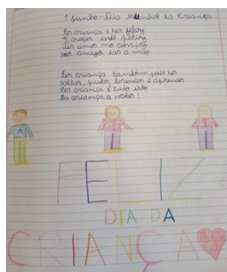 1 junho - Dia Mundial da Criança
Ser criança é ser feliz
É crescer sem
Ter amor no coração
aos amigos dar a mão
Ser criança também pode ser
saltar, pular, brincar e aprender
Ser criança é tudo isto
Ser criança a valer!
FELIZ
DIA DA
CRIANÇA